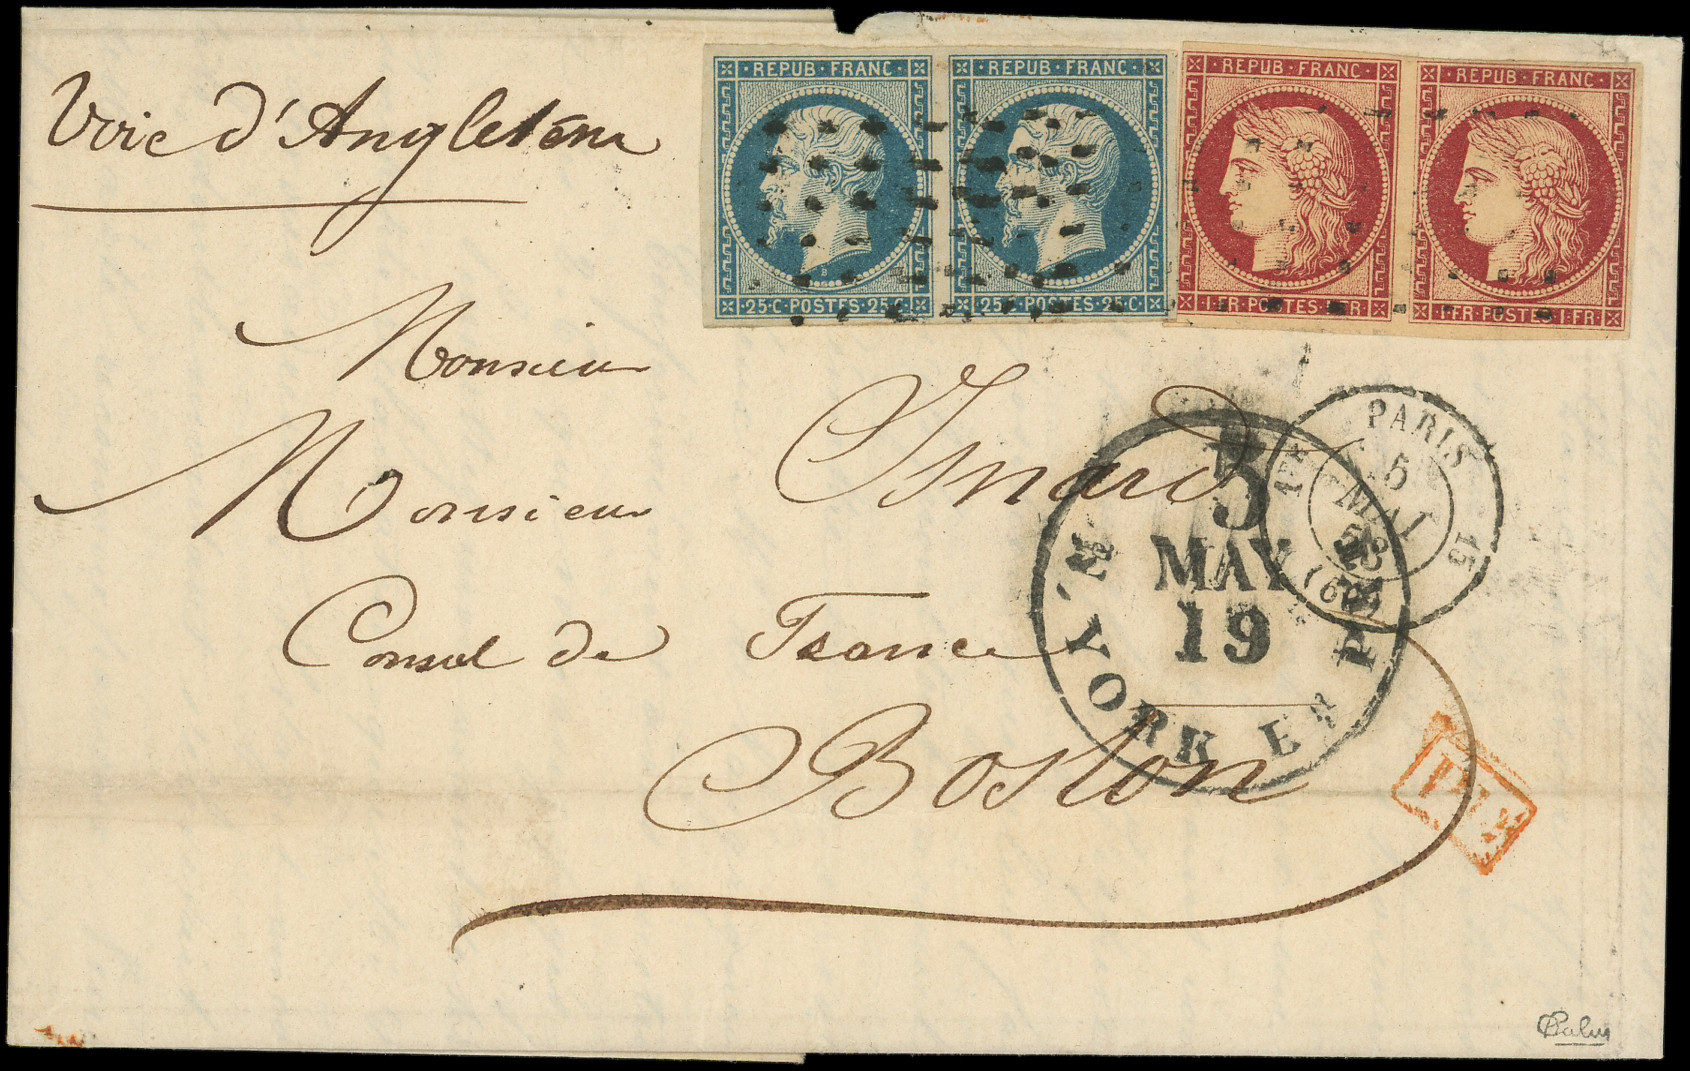 Voie d'Angleterre
REPUB·FRANC
REPUB·FRANC
REPUB·FRANC
REPUB·FRANC
B
·25·C·POSTES·25·C·
·25·C·POSTES·25·C·
·1·FR·POSTES·1·FR·
·1·FR·POSTES·1·FR·
Monsieur
Monsieur Isnard
Consul de France
Boston
PARIS
1RE 15
5
MAI
53
(60)
5
MAY
19
N.YORK